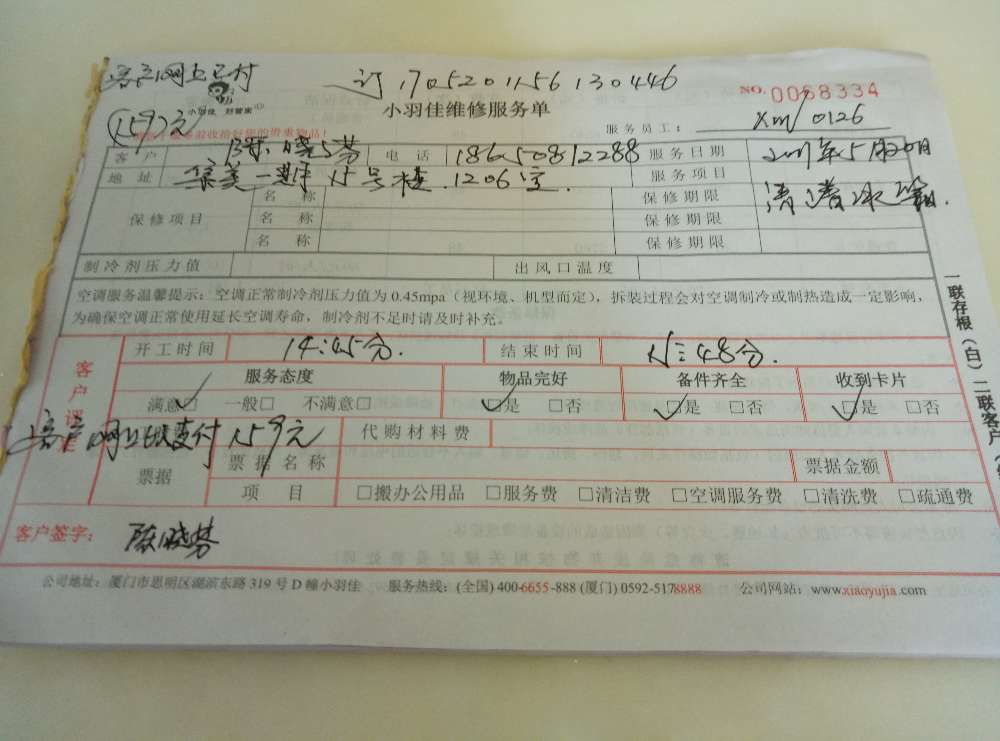 客户网上已付 订170520115613044​6
NO. 0068334
小羽佳 好管家
小羽佳维修服务单
(159)元
服务员工： Xm/0126
客户 陈晓芬 电话 18650812288 服务日期 2017年5月20日
地址 集美一号 15号楼.1206室. 服务项目 清洁冰箱.
保修项目 名称 保修期限
名称 保修期限
名称 保修期限
制冷剂压力值 出风口温度
空调服务温馨提示：空调正常制冷剂压力值为0.45mpa（视环境、机型而定），拆装过程会对空调制冷或制热造成一定影响，
为确保空调正常使用延长空调寿命，制冷剂不足时请及时补充。
一联存根（白）二联客户
客户评定
开工时间 14:45分. 结束时间 15:48分.
服务态度 物品完好 备件齐全 收到卡片
满意☑ 一般□ 不满意□ ☑是 □否 ☑是 □否 ☑是 □否
客户网上支付159元 代购材料费
票据 票据名称 票据金额
项目 □搬办公用品 □服务费 □清洁费 □空调服务费 □清洗费 □疏通费
客户签字： 陈晓芬
公司地址：厦门市思明区湖滨东路319号D幢小羽佳 服务热线：(全国) 400-6655-888 (厦门) 0592-5178888 公司网站：www.xiaoyujia.com